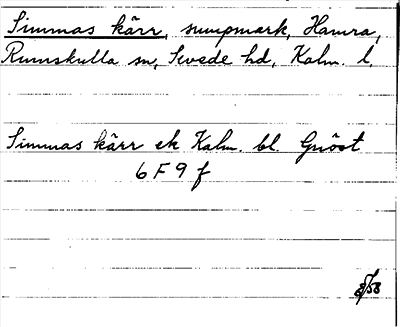 Simmas kärr, sumpmark, Hamra,
Rumskulla sn, Sevede hd, Kalm. l.
Simmas kärr ek Kalm. bl.
6 F 9 f